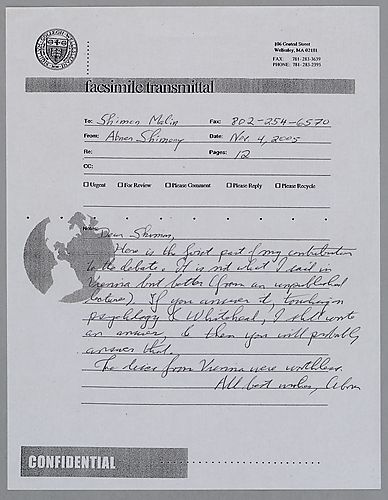 106 Central Street
Wellesley, MA 02181
FAX: 781-283-3639
PHONE: 781-283-2395
facsimile transmittal
To: Shimon Malin Fax: 802-254-6570
From: Abner Shimony Date: Nov. 4, 2005
Re: Pages: 12
CC:
Urgent For Review Please Comment Please Reply Please Recycle
Notes: Dear Shimon,
Here is the first part of my contribution
to the debate. It is not what I said in
Vienna but better (from an unpublished
lecture). If you answer it, touching
psychology & Whitehead, I shall write
an answer, & then you will probably
answer that.
The discs from Vienna were worthless.
All best wishes, Abner
CONFIDENTIAL